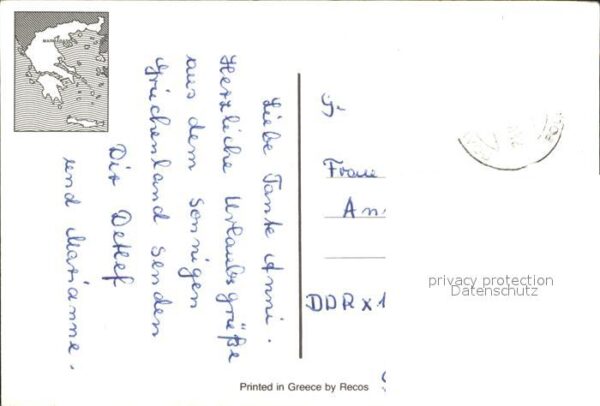 Liebe Tante Anni.
Herzliche Urlaubsgrüße
aus dem sonnigen
Griechenland senden
Dir Detlef
und Marianne.
Frau
An
DDR x 1
privacy protection
Datenschutz
Printed in Greece by Recos